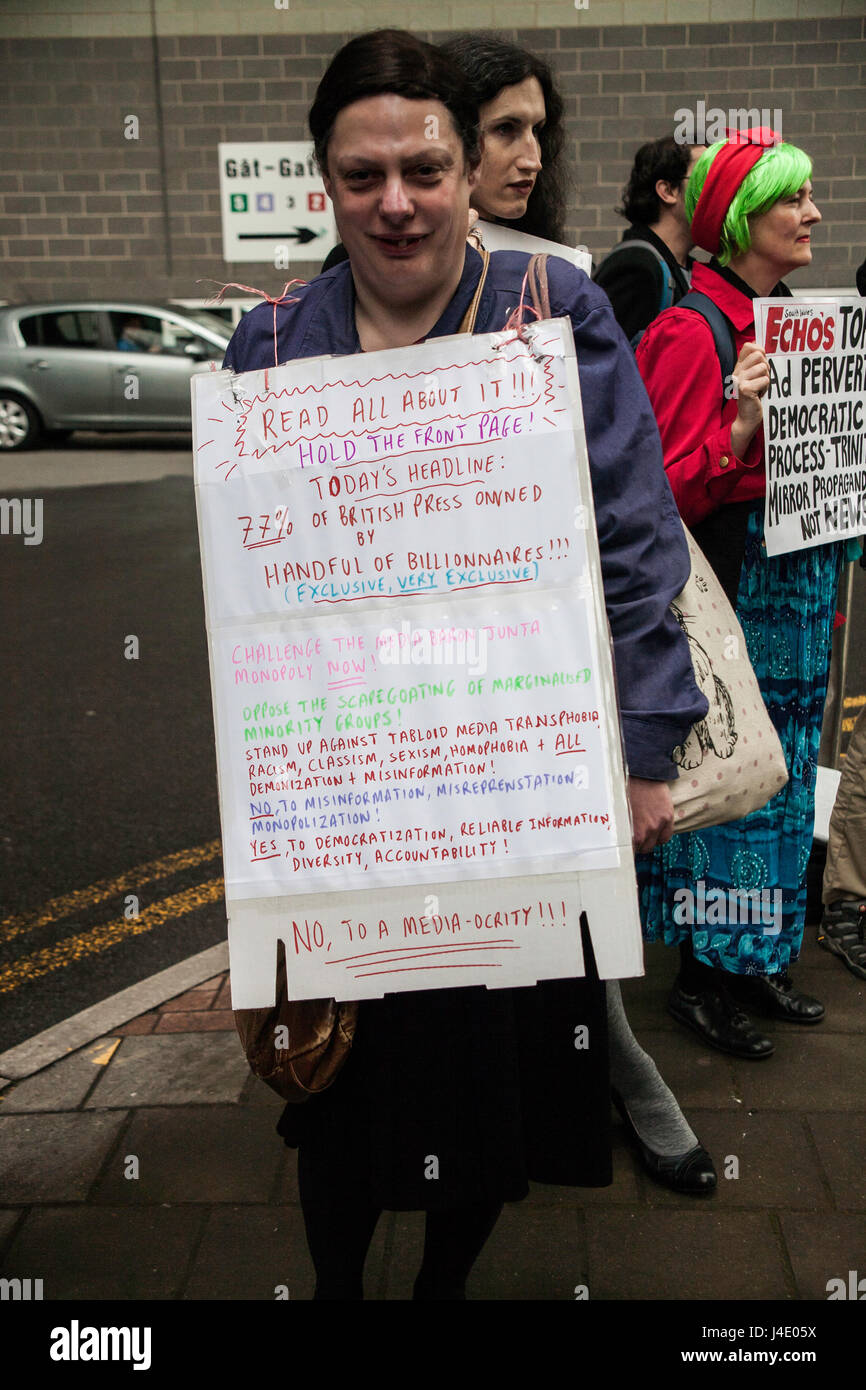 Gât-Gate
5 4 3 2
READ ALL ABOUT IT!!!
HOLD THE FRONT PAGE!
TODAY'S HEADLINE:
77% OF BRITISH PRESS OWNED
BY
HANDFUL OF BILLIONNAIRES!!!
(EXCLUSIVE, VERY EXCLUSIVE)
CHALLENGE THE MEDIA BARON JUNTA
MONOPOLY NOW!
OPPOSE THE SCAPEGOATING OF MARGINALISED
MINORITY GROUPS!
STAND UP AGAINST TABLOID MEDIA TRANSPHOBIA
RACISM, CLASSISM, SEXISM, HOMOPHOBIA + ALL
DEMONIZATION + MISINFORMATION!
NO, TO MISINFORMATION, MISREPRENSTATION,
MONOPOLIZATION!
YES, TO DEMOCRATIZATION, RELIABLE INFORMATION,
DIVERSITY, ACCOUNTABILITY!
NO, TO A MEDIA-OCRITY!!!
South Wales
ECHO'S TO
Ad PERVER
DEMOCRATIC
PROCESS-TRINI
MIRROR PROPAGAND
NOT NEWS
alamy
Image ID: J4E05X
www.alamy.com